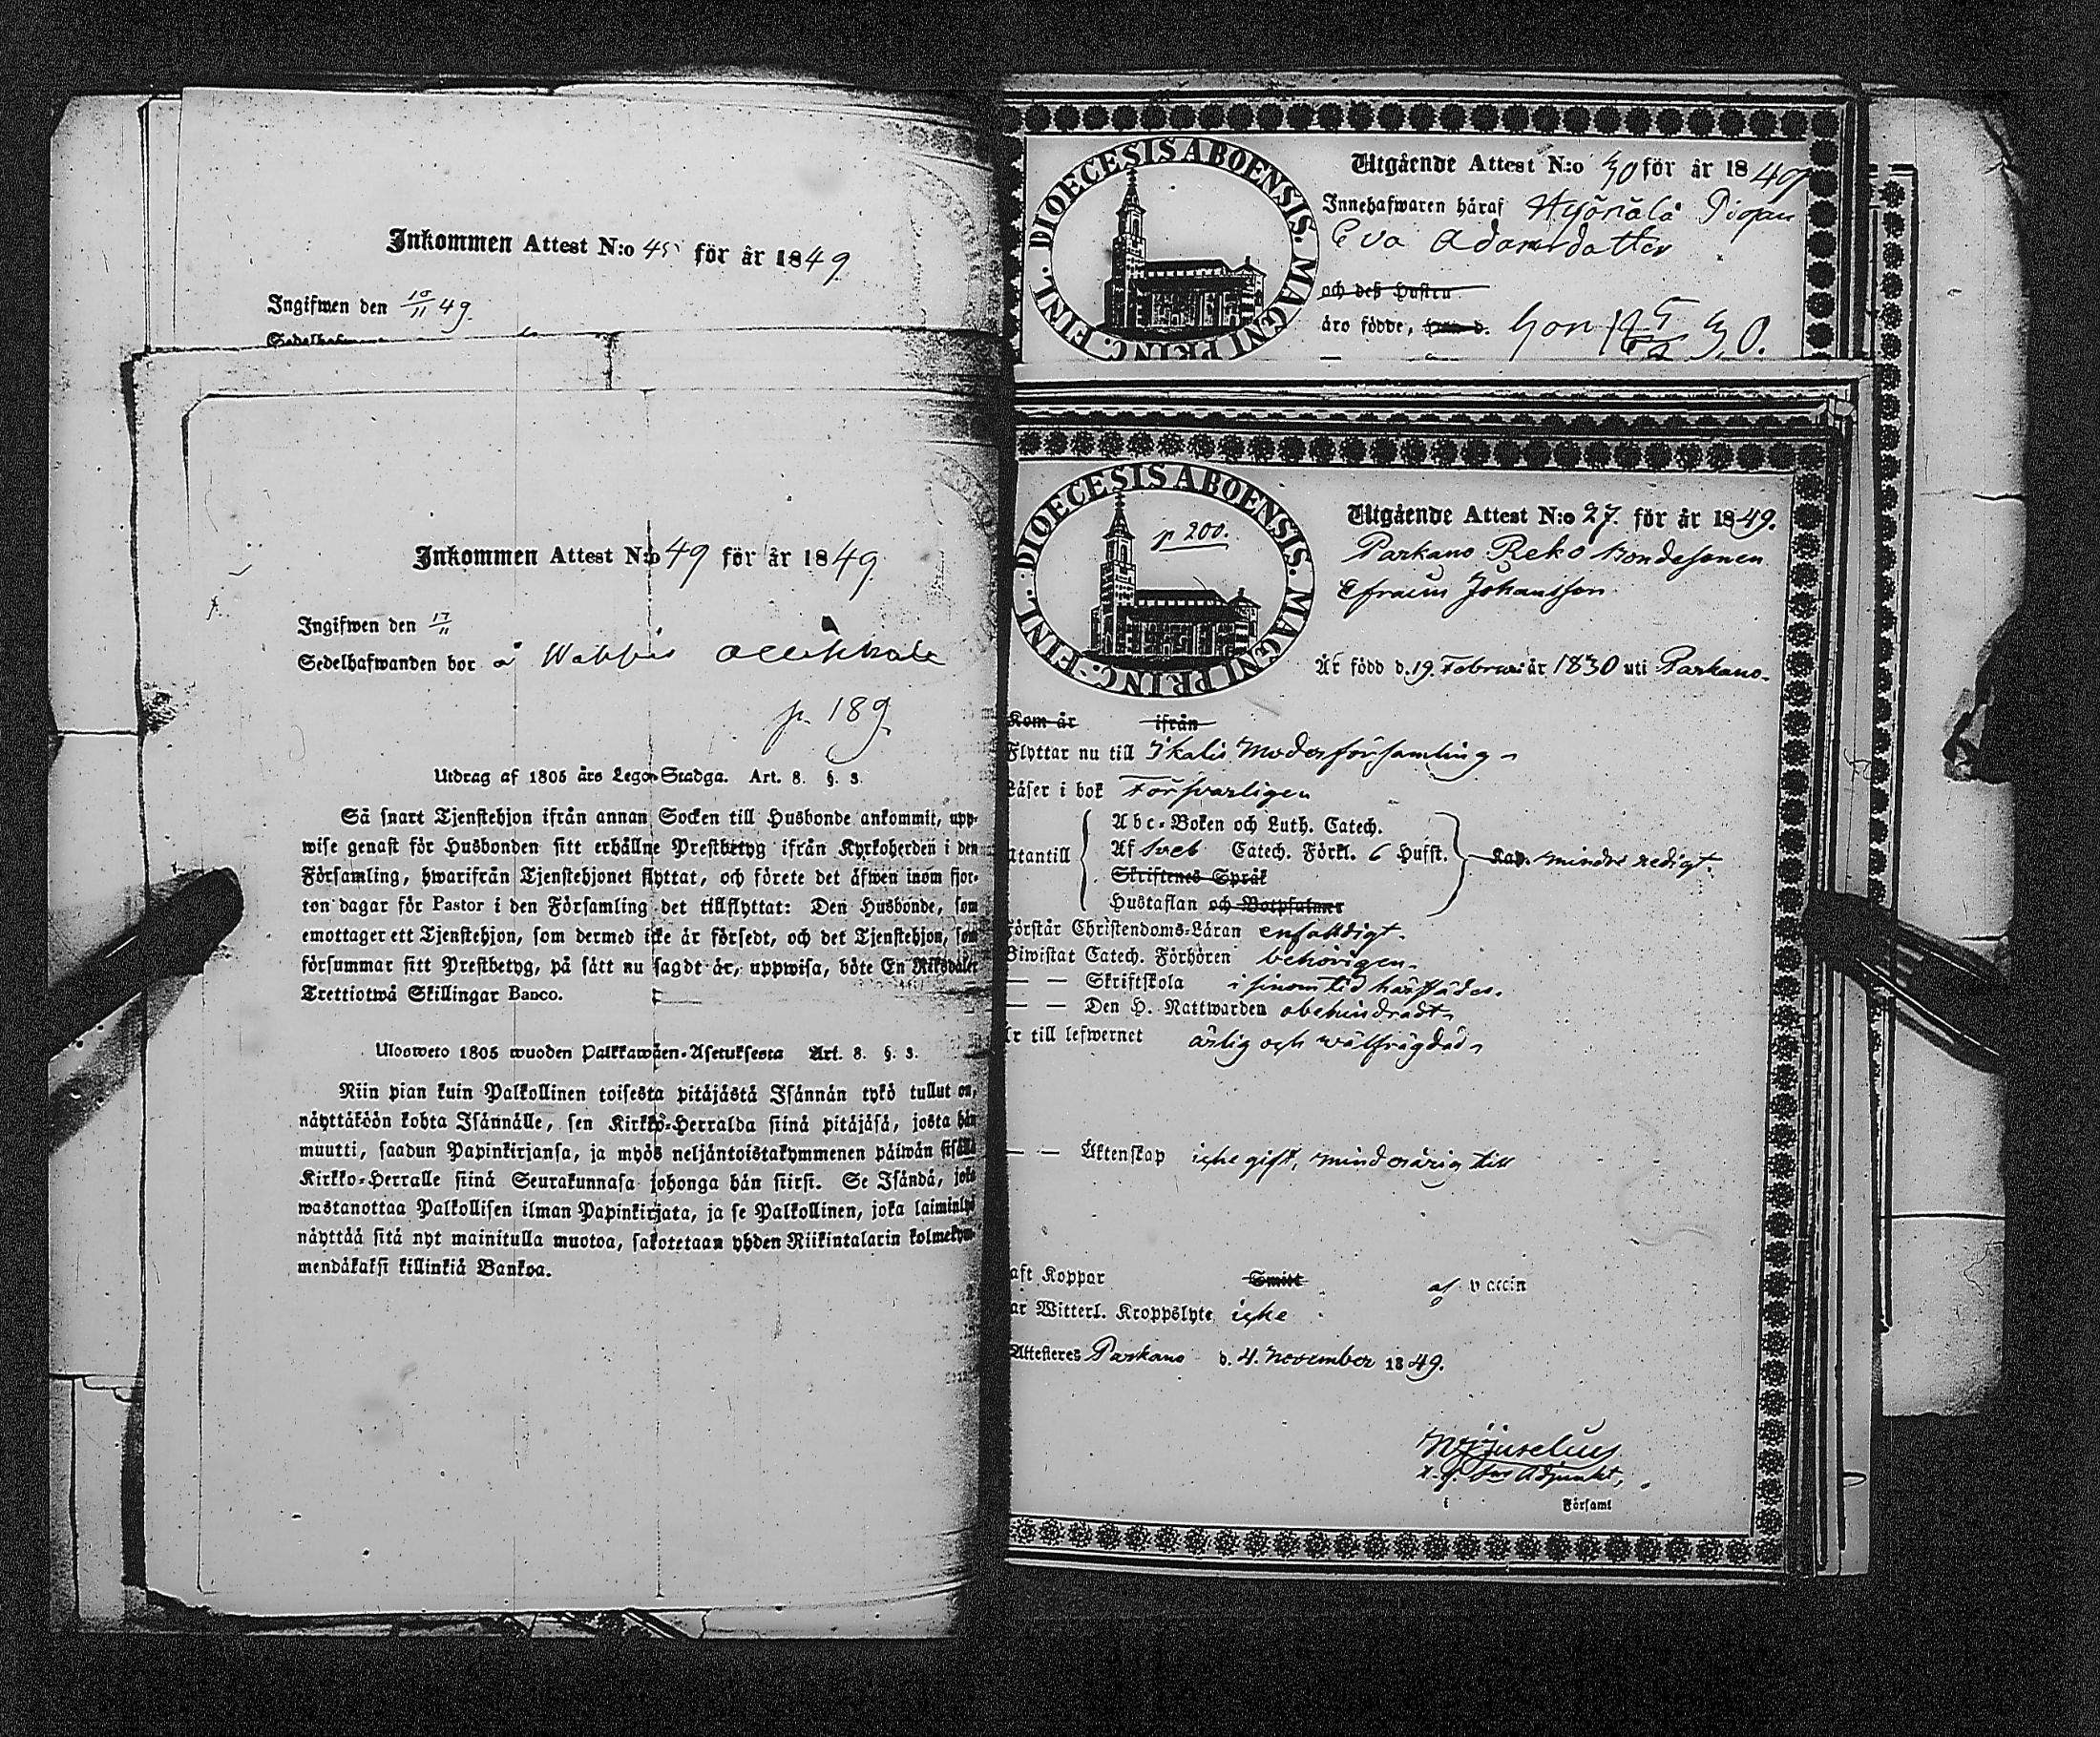 Inkommen Attest N:o 45 för år 1849.
Ingifwen den 10/11 49.
Inkommen Attest N:o 49 för år 1849.
Ingifwen den 17/11
Sedelhafwanden bor å
p. 189
Utdrag af 1805 års Lego-Stadga. Art. 8. §. 3.
Så snart Tjenstehjon ifrån annan Socken till Husbonde ankommit, upp-
wise genast för Husbonden sitt erhållne Prestbetyg ifrån Kyrkoherden i den
Församling, hwarifrån Tjenstehjonet flyttat, och förete det äfwen inom fjor-
ton dagar för Pastor i den Församling det tillflyttat: Den Husbonde, som
emottager ett Tjenstehjon, som dermed icke är försedt, och det Tjenstehjon, som
försummar sitt Prestbetyg, på sätt nu sagdt är, uppwisa, böte En Riksdaler
Trettiotwå Skillingar Banco.
Ulosweto 1805 wuoden Palkkawäen-Asetuksesta Art. 8. §. 3.
Niin pian kuin Palkollinen toisesta pitäjästä Isännän tykö tullut on,
näyttäköön kohta Isännälle, sen Kirkko-Herralda siinä pitäjäsä, josta hän
muutti, saadun Papinkirjansa, ja myös neljäntoistakymmenen päiwän sisällä
Kirkko-Herralle siinä Seurakunnasa johonga hän siirsi. Se Isändä, joka
wastanottaa Palkollisen ilman Papinkirjata, ja se Palkollinen, joka laiminlyö
näyttää sitä nyt mainitulla muotoa, sakotetaan yhden Riikintalarin kolmekym-
mendäkaksi killinkiä Bankoa.
DIOECESIS ABOENSIS. MAGNI PRINC. FINL.
Utgående Attest N:o 30 för år 1849
Innehafwaren häraf Pigan
Eva Adamsdotter
och deß Hustru
äro födde, han d. hon 30.
DIOECESIS ABOENSIS. MAGNI PRINC. FINL.
p 200.
Utgående Attest N:o 27. för år 1849.
Parkano Reko Bondesonen
Efraim Johansson
Är född d. 19. Februari år 1830 uti Parkano.
Kom år ifrån
Flyttar nu till Ikalis Moderförsamling
Läser i bok Försvarligen
Utantill
Abc-Boken och Luth. Catech.
Af Sveb Catech. Förkl. 6 Hufst. Kap. mindre redigt.
Skriftenes Språk
Hustaflan och Botpsalmer
Förstår Christendoms-Läran enfaldigt.
Biwistat Catech. Förhören behörigen
— — Skriftskola i sinom tid härstädes.
— — Den H. Nattwarden obehindradt
Är till lefwernet ärlig och wälfrägdad
— — Äktenskap icke gift, minderårig till
Haft Koppor Smitt af vaccin
Har Witterl. Kroppslyte icke
Attesteres Parkano d. 4. November 1849.
Adjunkt,
i Församl